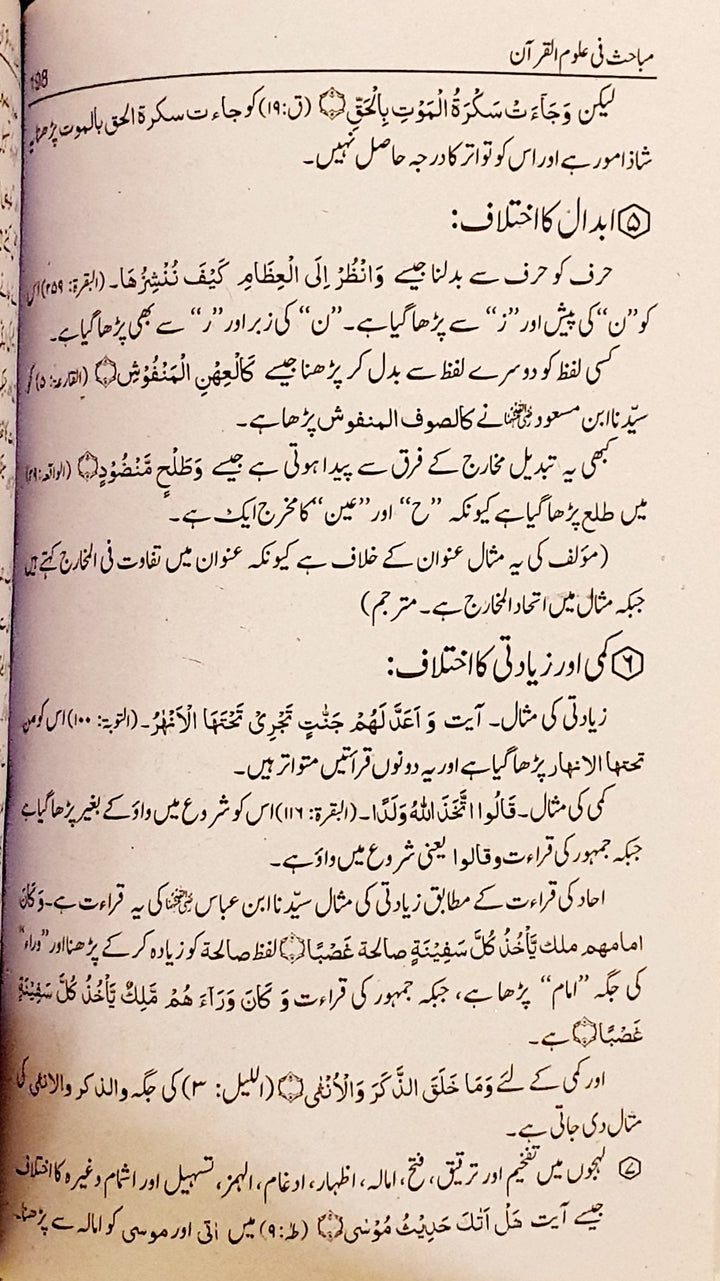 مباحث فی علوم القرآن
198
لیکن وَجَآءَتْ سَكْرَةُ الْمَوْتِ بِالْحَقِّ (ق:۱۹) کو جاءت سكرة الحق بالموت پڑھنا یہ
شاذ امور ہے اور اس کو تواتر کا درجہ حاصل نہیں۔
⑤ ابدال کا اختلاف:
حرف کو حرف سے بدلنا جیسے وَانْظُرْ اِلَی الْعِظَامِ كَیْفَ نُنْشِزُهَا۔ (البقرة: ۲۵۹) اس
کو ”ن“ کی پیش اور ”ز“ سے پڑھا گیا ہے۔ ”ن“ کی زبر اور ”ر“ سے بھی پڑھا گیا ہے۔
کسی لفظ کو دوسرے لفظ سے بدل کر پڑھنا جیسے كَالْعِهْنِ الْمَنْفُوْشِ (القارعۃ: ۵) کو
سیّدنا ابن مسعود رضی اللہ عنہ نے كالصوف المنفوش پڑھا ہے۔
کبھی یہ تبدیل مخارج کے فرق سے پیدا ہوتی ہے جیسے وَطَلْحٍ مَّنْضُوْدٍ (الواقعہ: ۲۹)
میں طلع پڑھا گیا ہے کیونکہ ”ح“ اور ”عین“ کا مخرج ایک ہے۔
(مؤلف کی یہ مثال عنوان کے خلاف ہے کیونکہ عنوان میں تفاوت فی المخارج کہتے ہیں
جبکہ مثال میں اتحاد المخارج ہے۔ مترجم)
⑥ کمی اور زیادتی کا اختلاف:
زیادتی کی مثال۔ آیت وَ اَعَدَّ لَهُمْ جَنّٰتٍ تَجْرِیْ تَحْتَهَا الْاَنْهٰرُ۔ (التوبۃ: ۱۰۰) اس کو من
تحتها الانهار پڑھا گیا ہے اور یہ دونوں قرأتیں متواتر ہیں۔
کمی کی مثال۔ قَالُوا اتَّخَذَ اللّٰهُ وَلَدًا۔ (البقرة: ۱۱۶) اس کو شروع میں واؤ کے بغیر پڑھا گیا ہے
جبکہ جمہور کی قراءت وقالوا یعنی شروع میں واؤ ہے۔
احاد کی قراءت کے مطابق زیادتی کی مثال سیّدنا ابن عباس رضی اللہ عنہ کی یہ قراءت ہے۔ وَ كَانَ
امامهم ملك یَّاْخُذُ كُلَّ سَفِیْنَةٍ صالحة غَصْبًا لفظ صالحة کو زیادہ کر کے پڑھنا اور ”وراء“
کی جگہ ”امام“ پڑھا ہے، جبکہ جمہور کی قراءت وَ كَانَ وَرَآءَ هُمْ مَّلِكٌ یَّاْخُذُ كُلَّ سَفِیْنَةٍ
غَصْبًا ہے۔
اور کمی کے لئے وَمَا خَلَقَ الذَّكَرَ وَالْاُنْثٰی (اللیل: ۳) کی جگہ والذكر والانثی کی
مثال دی جاتی ہے۔
⑦ لہجوں میں تفخیم اور ترقیق، فتح، امالہ، اظہار، ادغام، الہمز، تسہیل اور اشمام وغیرہ کا اختلاف
جیسے آیت هَلْ اَتٰكَ حَدِیْثُ مُوْسٰی (طٰہٰ: ۹) میں اتی اور موسی کو امالہ سے پڑھنا۔